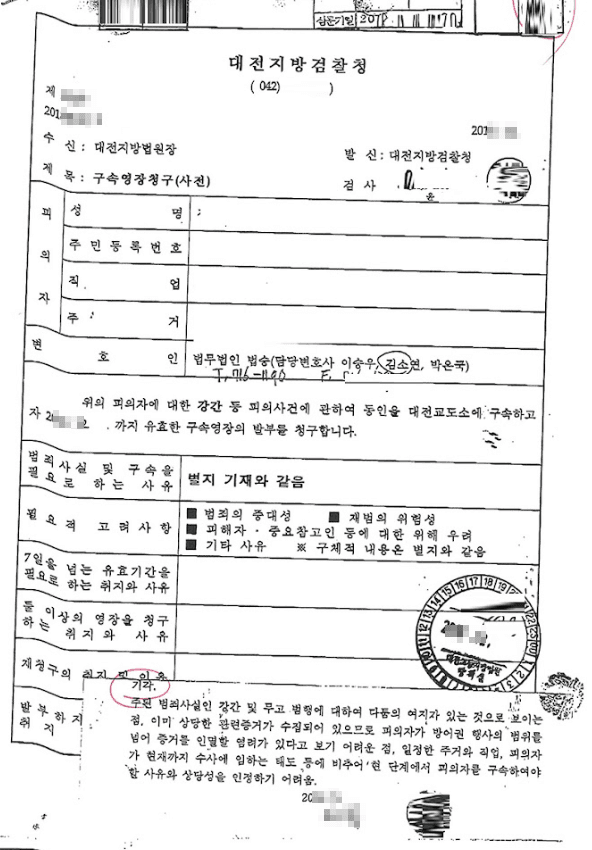 심문기일
대전지방검찰청
(042)
제
201
수 신 : 대전지방법원장
발 신 : 대전지방검찰청
제 목 : 구속영장청구(사전)
검 사
피의자
성 명 ;
주민등록번호
직 업
주 거
변 호 인
법무법인 법승(담당변호사 이승우, 김소연, 박은국)
T. 716-1190 F.
위의 피의자에 대한 강간 등 피의사건에 관하여 동인을 대전교도소에 구속하고
자 까지 유효한 구속영장의 발부를 청구합니다.
범죄사실 및 구속을
필요로 하는 사유
별지 기재와 같음
필요적 고려사항
■ 범죄의 중대성 ■ 재범의 위험성
■ 피해자 · 중요참고인 등에 대한 위해 우려
■ 기타 사유 ※ 구체적 내용은 별지와 같음
7일을 넘는 유효기간을
필요로 하는 취지와 사유
둘 이상의 영장을 청구
하는 취지와 사유
재청구의 취지 및 이유
발부하지
취지
기각.
주된 범죄사실인 강간 및 무고 범행에 대하여 다툼의 여지가 있는 것으로 보이는
점, 이미 상당한 관련증거가 수집되어 있으므로 피의자가 방어권 행사의 범위를
넘어 증거를 인멸할 염려가 있다고 보기 어려운 점, 일정한 주거와 직업, 피의자
가 현재까지 수사에 임하는 태도 등에 비추어 현 단계에서 피의자를 구속하여야
할 사유와 상당성을 인정하기 어려움.
20